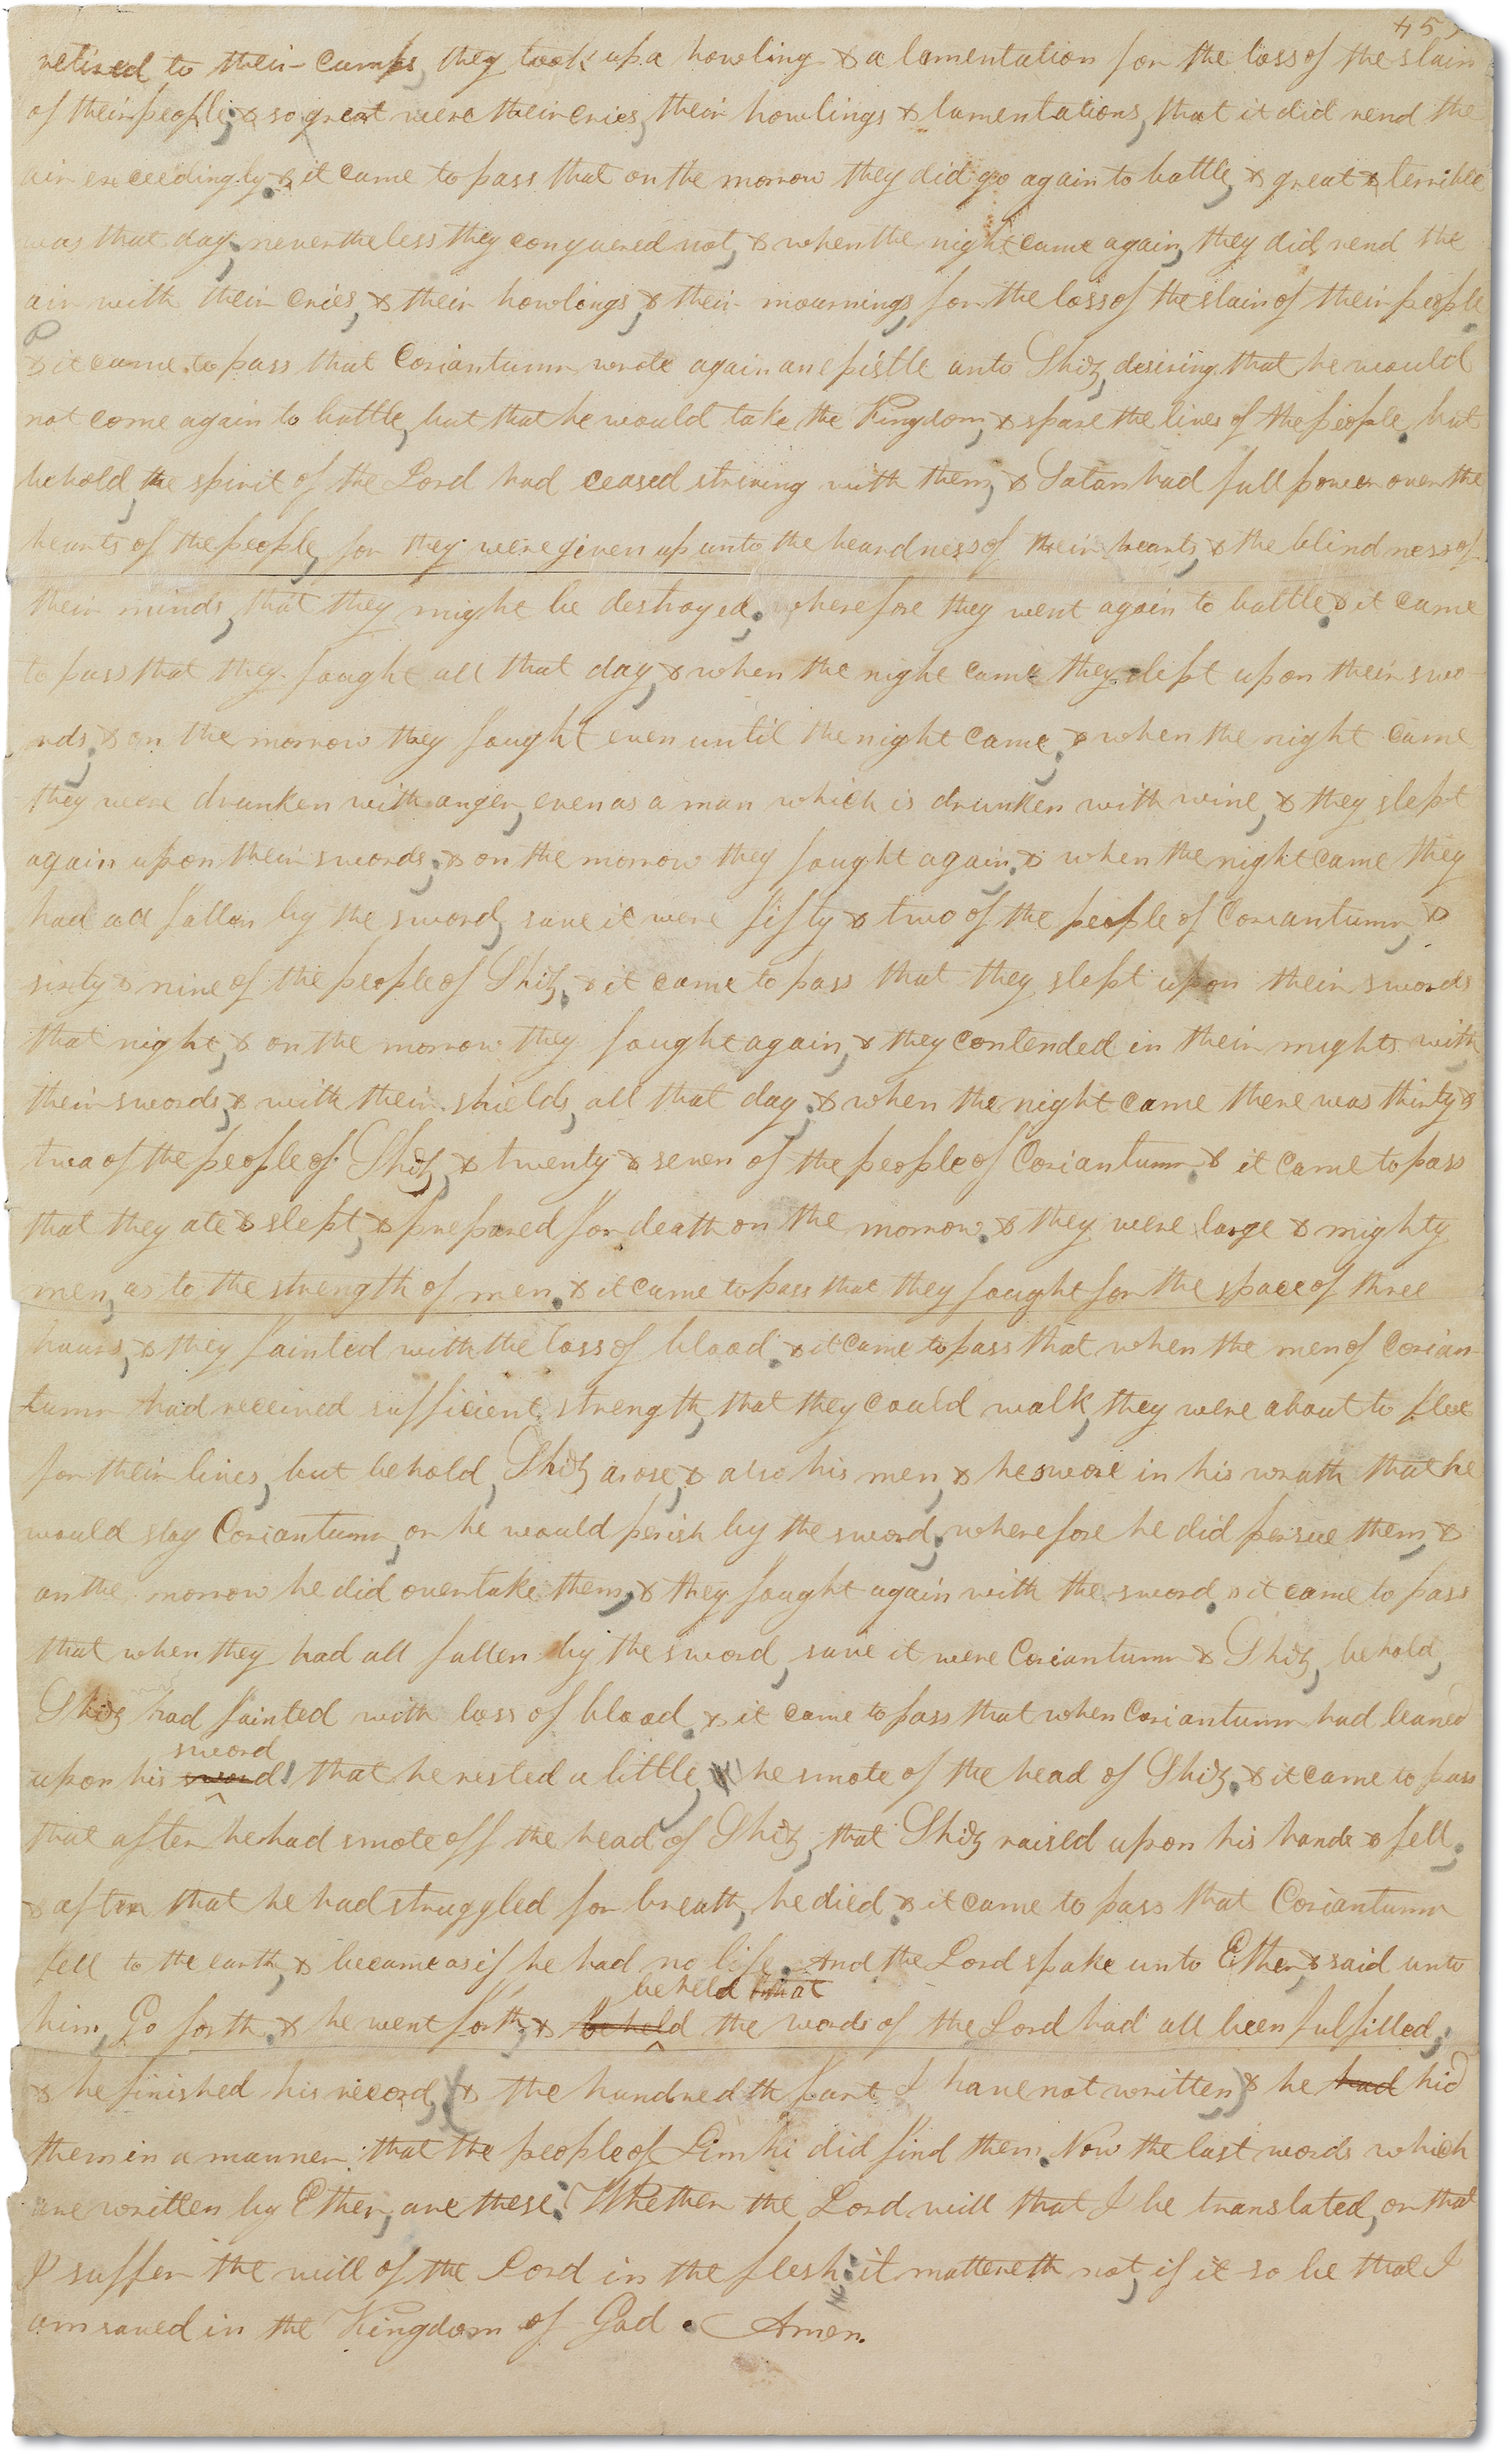 45
retired to their camps, they took up a howling & a lamentation for the loss of the slain
of their people; & so great were their cries, their howlings & lamentations, that it did rend the
air exceedingly. & it came to pass that on the morrow they did go again to battle, & great & terrible
was that day; nevertheless they conquered not, & when the night came again, they did rend the
air with their cries, & their howlings, & their mournings, for the loss of the slain of their people.
P
& it came to pass that Coriantumr wrote again an epistle unto Shiz, desiring that he would
not come again to battle, but that he would take the Kingdom, & spare the lives of the people. but
behold, the spirit of the Lord had ceased striving with them, & Satan had full power over the
hearts of the people, for they were given up unto the heardness of their hearts, & the blindness of
their minds, that they might be destroyed; wherefore they went again to battle. & it came
to pass that they fought all that day, & when the night came they slept upon their swo-
rds; & on the morrow they fought even until the night came; & when the night came
they were drunken with anger, even as a man which is drunken with wine, & they slept
again upon their swords; & on the morrow they fought again; & when the night came they
had all fallen by the sword, save it were fifty & two of the people of Coriantumr, &
sixty & nine of the people of Shiz. & it came to pass that they slept upon their swords
that night, & on the morrow they fought again, & they contended in their mights with
their swords, & with their shields, all that day; & when the night came there was thirty &
two of the people of Shiz, & twenty & seven of the people of Coriantumr. & it came to pass
that they ate & slept, & prepared for death on the morrow. & they were large & mighty
men, as to the strength of men. & it came to pass that they fought for the space of three
hours, & they fainted with the loss of blood. & it came to pass that when the men of Corian-
tumr had received sufficient strength, that they could walk, they were about to flee
for their lives, but behold, Shiz arose, & also his men, & he swore in his wrath that he
would slay Coriantumr, or he would perish by the sword; wherefore he did persue them, &
on the morrow he did overtake them, & they fought again with the sword. & it came to pass
that when they had all fallen by the sword, save it were Coriantumr & Shiz, behold,
Shiz had fainted with loss of blood. & it came to pass that when Coriantumr had leaned
sword
upon his sword, that he rested a little, he smote of the head of Shiz. & it came to pass
that after he had smote off the head of Shiz, that Shiz raised upon his hands & fell;
& after that he had struggled for breath, he died. & it came to pass that Coriantumr
fell to the earth, & became as if he had no life. And the Lord spake unto Ether, & said unto
beheld that
him, Go forth. & he went forth; & beheld the words of the Lord had all been fulfilled;
& he finished his record, (& the hundredth part I have not written) & he had hid
them in a manner that the people of Limhi did find them. Now the last words which
are written by Ether, are these. Whether the Lord will that I be translated, or that
I suffer the will of the Lord in the flesh: it mattereth not, if it so be that I
am saved in the Kingdom of God. Amen.